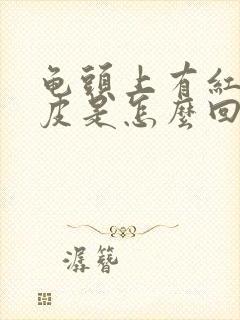 龟頭上有紅
皮是怎麼回
潺簪